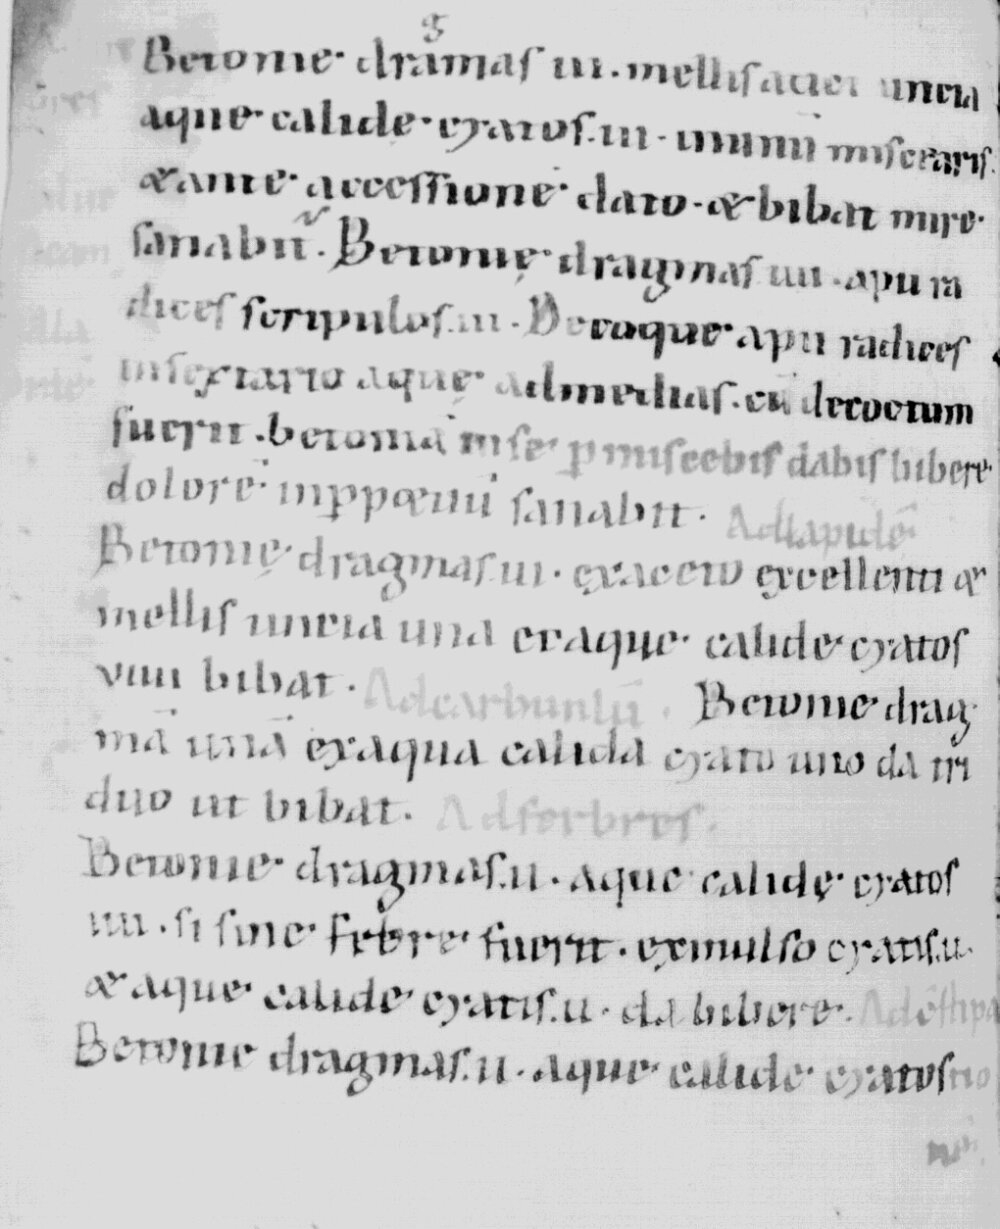 g
Betonie· dramas iii· mellis aceti uncia
aque· calide· cyatos .iii· inunū miscearis.
& ante· accessione· dato· & bibat mire·
sanabit̃. Betonię· dragmas iiii· apii ra
dices scripulos .iii· Decoque· apii radices
insextario aquę· admedias. cū decoctum
fuerit. betoniā īn se· p̱miscebis dabis bibere·
dolorē· inp̱p&uū sanabit. Adlapidē·
Betonię· dragmas .iii· exaceto excellenti &
mellis uncia una exaque· calide· cyatos
viiii bibat. Adcarbunlū· Betonie· drag
mā unā exaqua calida cyato uno da tri
duo ut bibat. Adfebres.
Betonie· dragmas .ii· aque calidę· cyatos
iiii· si sine· febre· fuerit. exmulso cyatis .ii·
& aque· calide· cyatis .ii· da bibere·
Betonie dragmas .ii· aque· calide· cyatos